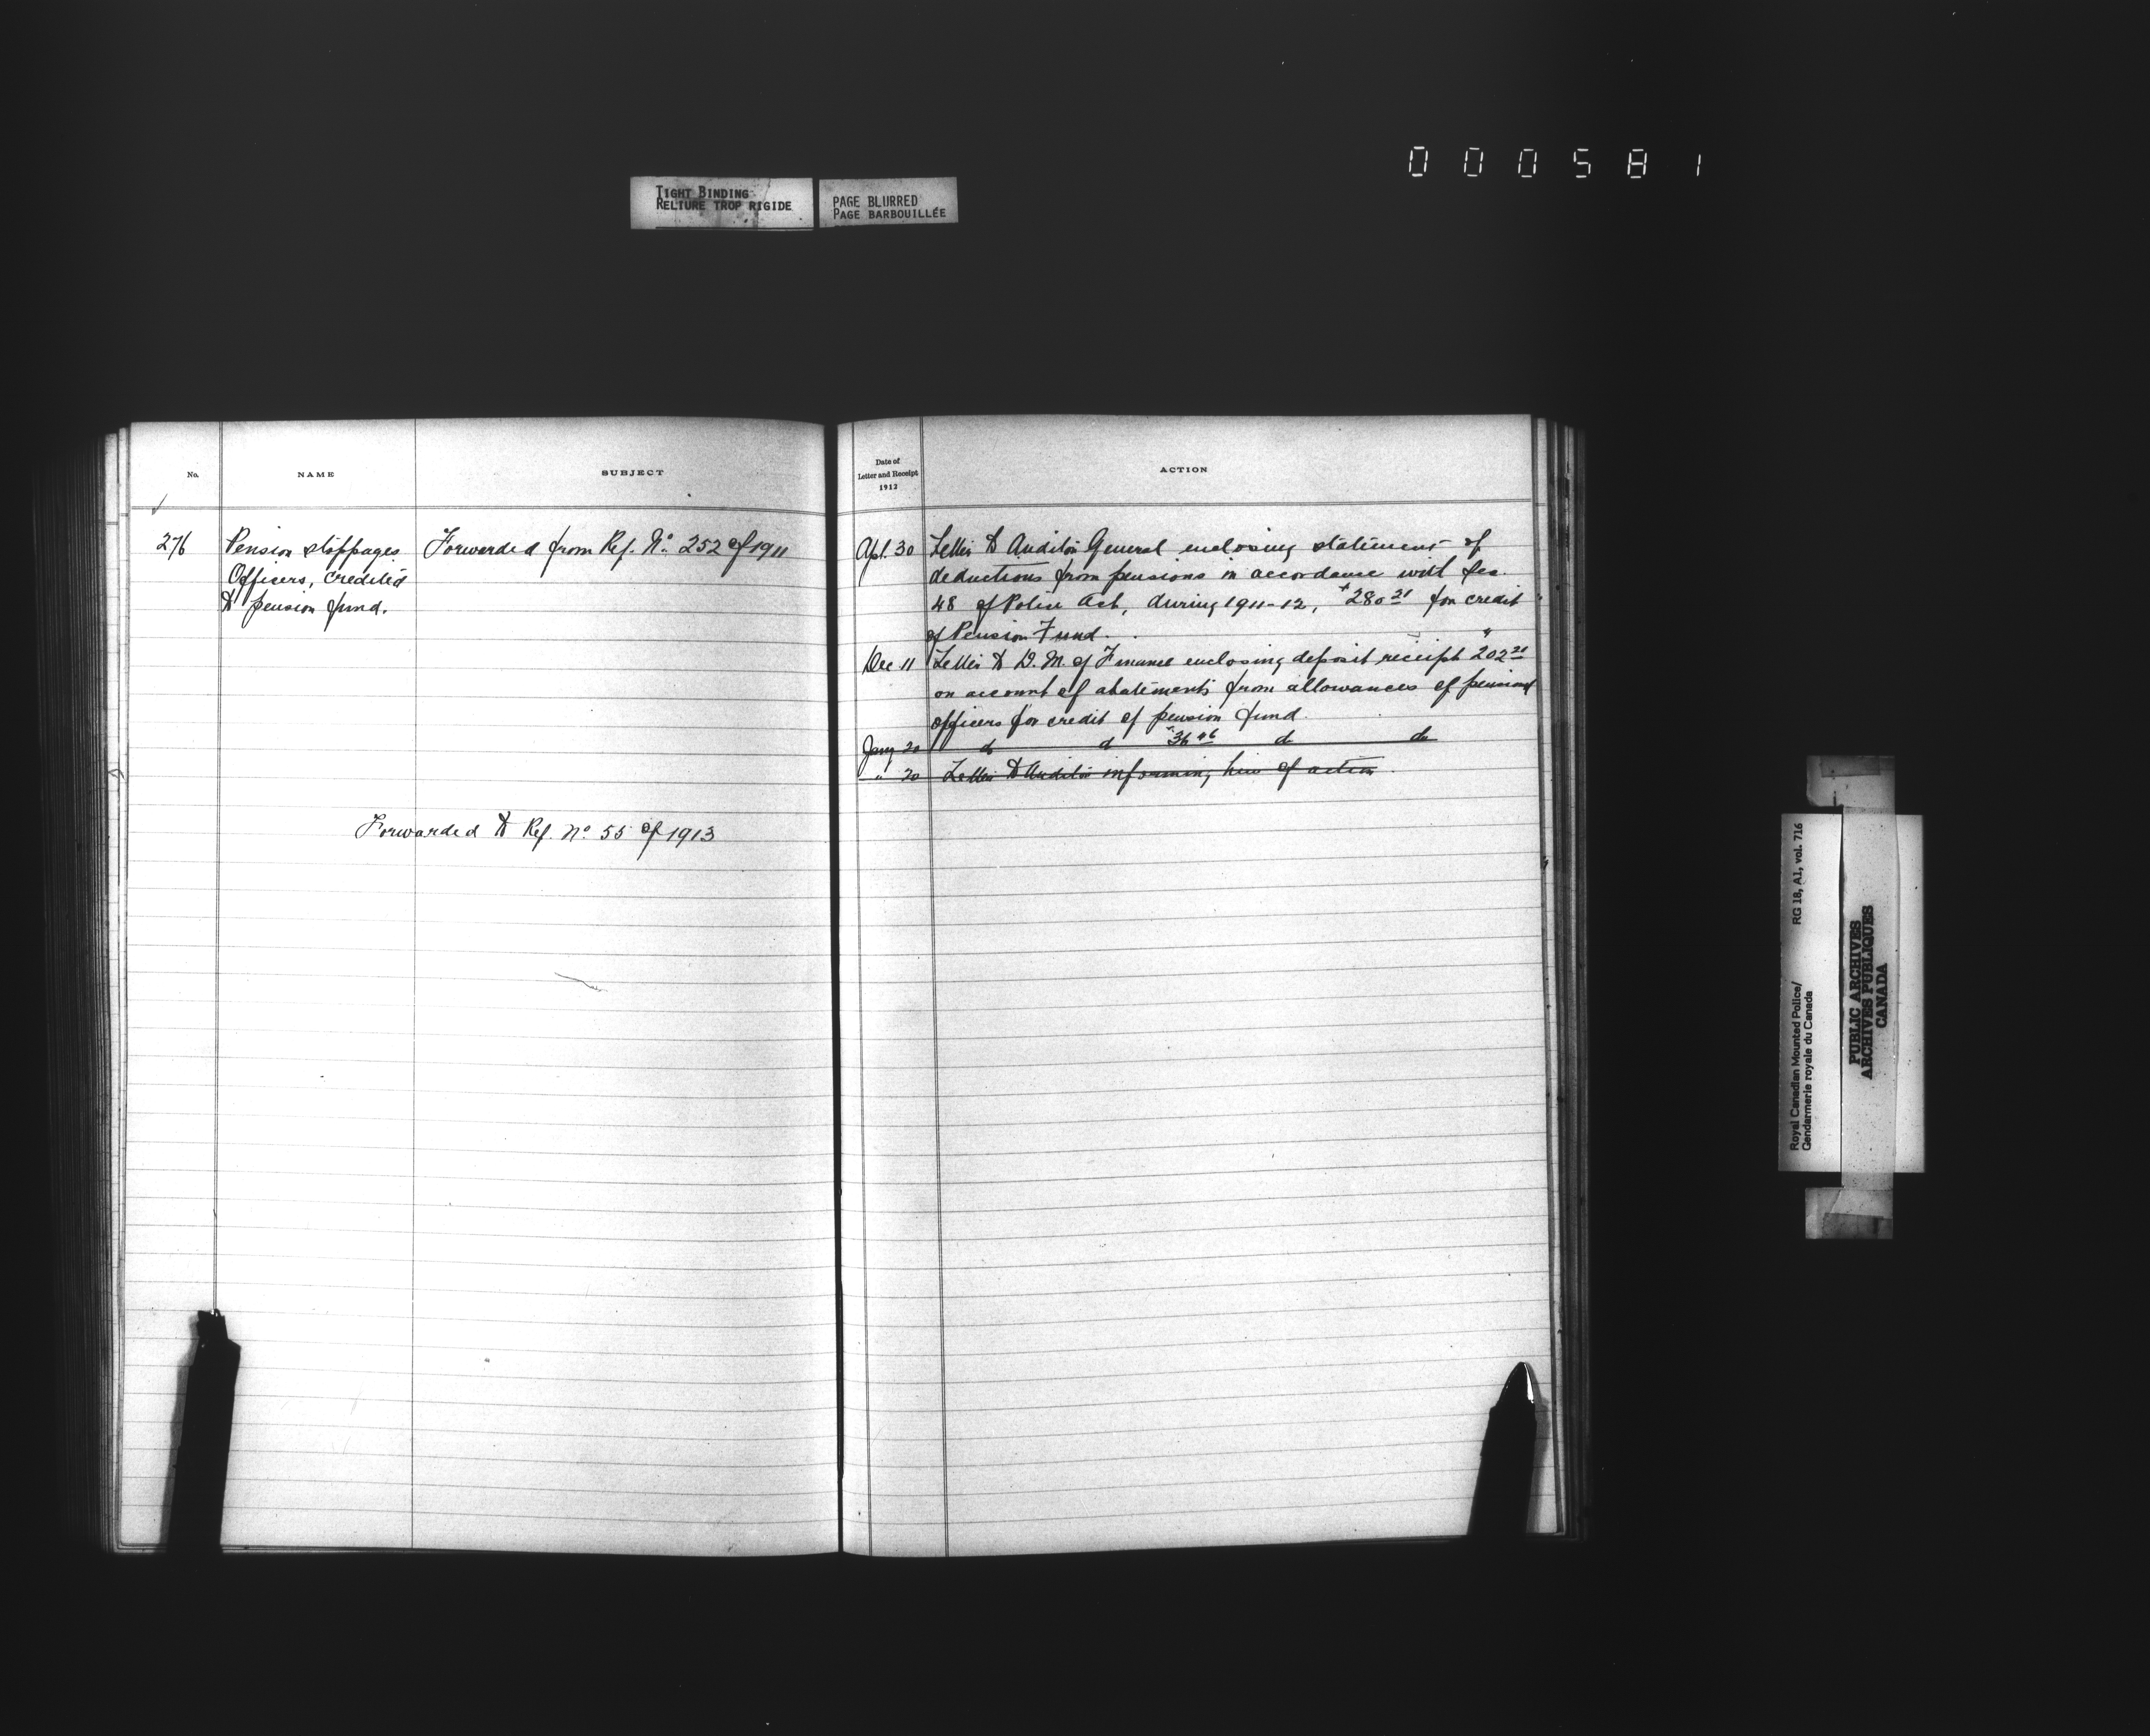 000581
TIGHT BINDING
RELIURE TROP RIGIDE
PAGE BLURRED
PAGE BARBOUILLÉE
No.
NAME
SUBJECT
276
Pension stoppages
Officers, credited
to pension fund.
Forwarded from Ref. No. 252 of 1911
Forwarded to Ref. No 55 of 1913
Date of
Letter and Receipt
1912
ACTION
Apl. 30 Letter to Auditor General enclosing statement of
deductions from pensions in accordance with Sec.
48 of Police Act, during 1911-12, $280.21 for credit
of Pension Fund.
Dec 11 Letter to D. M. of Finance enclosing deposit receipt 202.21
on account of abatements from allowances of pensioned
officers for credit of pension fund.
Jany 20 do do $36.46 do do
" 20 Letter to Auditor informing him of action.
Royal Canadian Mounted Police/
Gendarmerie royale du Canada
RG 18, A1, vol. 716
PUBLIC ARCHIVES
ARCHIVES PUBLIQUES
CANADA